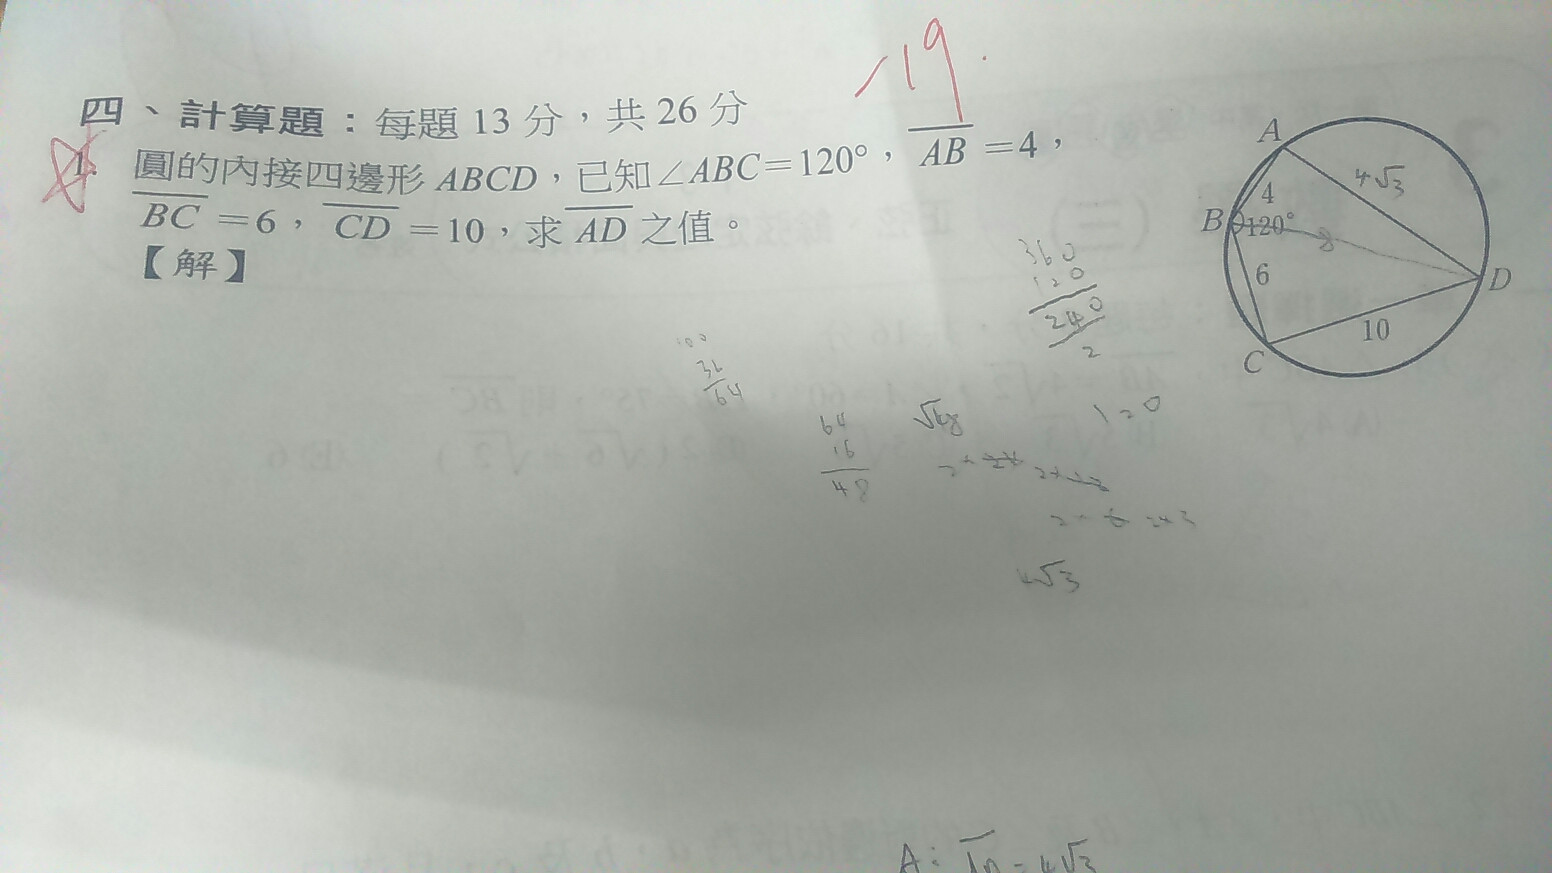 -19.
四、計算題：每題 13 分，共 26 分
1. 圓的內接四邊形 ABCD，已知∠ABC＝120°，AB＝4，
BC＝6，CD＝10，求 AD 之值。
【解】
A
4√3
4
B
120°
8
6
D
10
C
360
120
240
2
100
36
64
64
16
48
√48
120
4√3
A: AD = 4√3